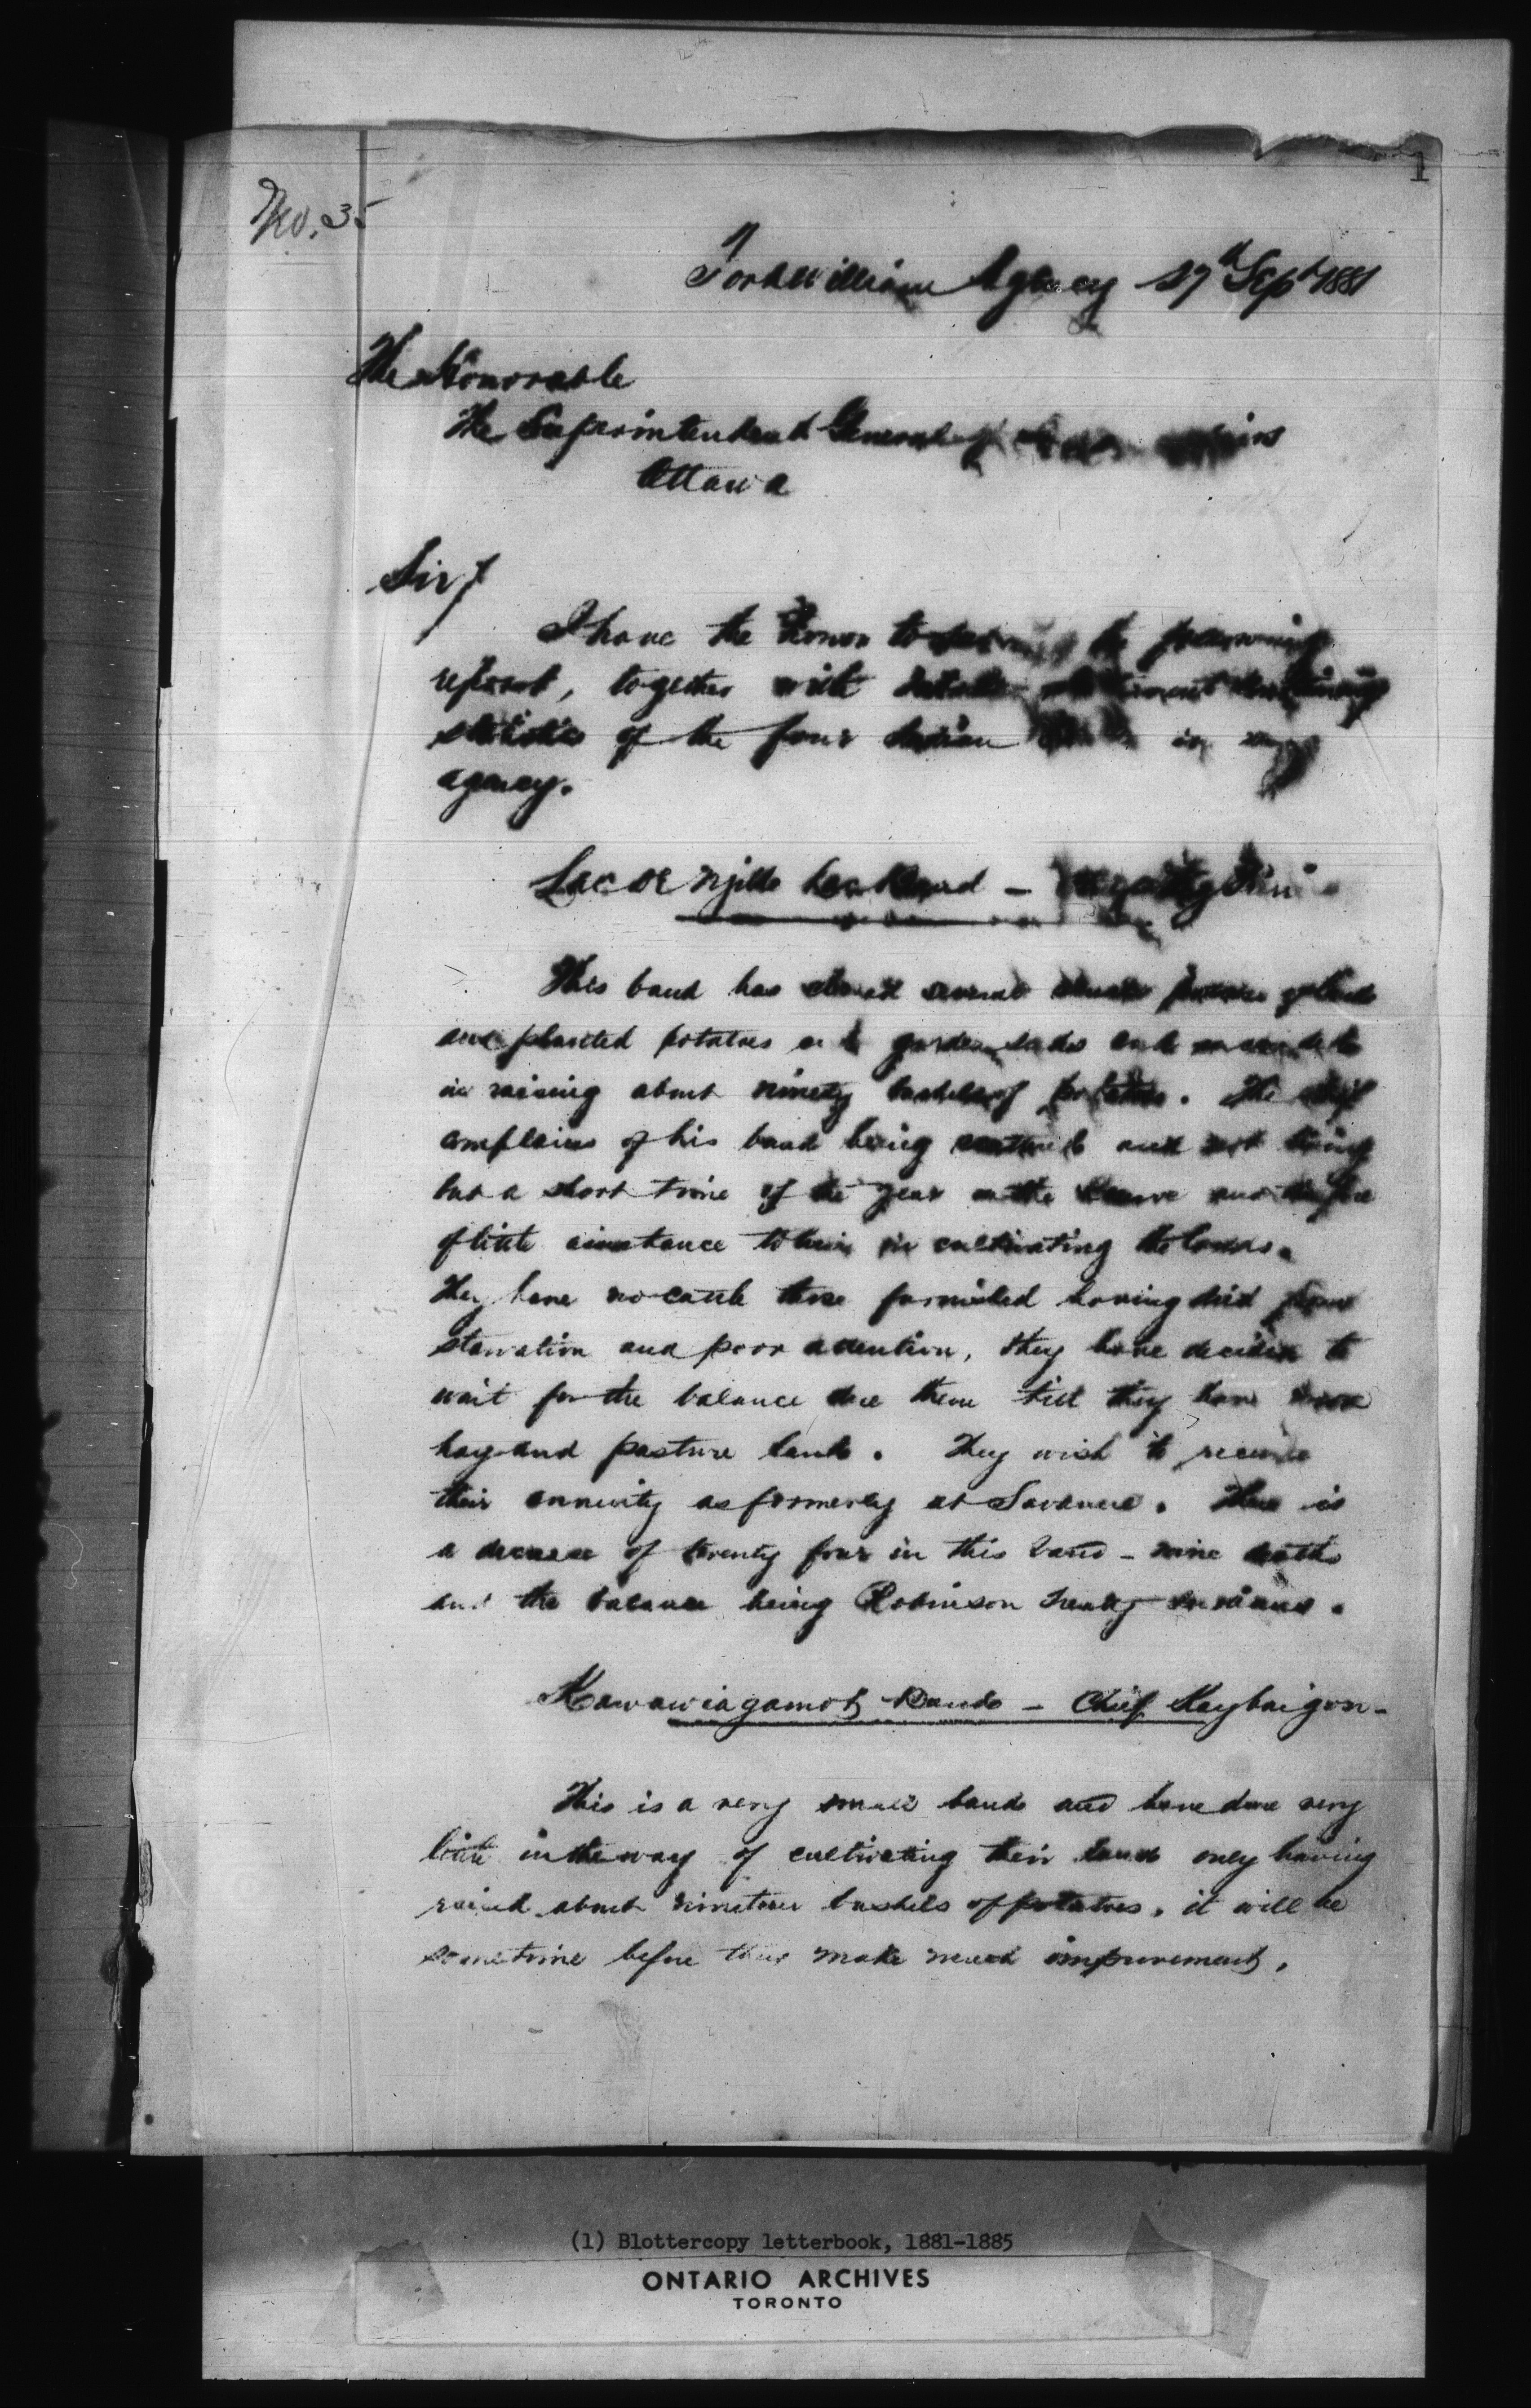 1
No. 35
Fort William Agency 27th Sept 1881
The Honorable
The Superintendent General of Indian Affairs
Ottawa
Sir/
I have the honor to the following
report, together with
statistics of the four Indian Bands in my
agency.
Lac De Mille Lac Band –
This band has several
and planted potatoes and garden and
in raising about ninety bushels of potatoes. The chief
complains of his band being and not being
but a short time of the year on the Reserve and therefore
of little assistance to him in cultivating the lands.
They have no cattle those furnished having died from
starvation and poor attention, they have decided to
wait for the balance due them till they have more
hay and pasture land. They wish to receive
their annuity as formerly at Savanne. There is
a decrease of twenty four in this band – nine deaths
and the balance being Robinson Treaty Indians.
Kawawiagamok Band – Chief Kaybaigon –
This is a very small band and have done very
little in the way of cultivating their land only having
raised about nineteen bushels of potatoes, it will be
sometime before they make much improvement.
(1) Blottercopy letterbook, 1881-1885
ONTARIO ARCHIVES
TORONTO